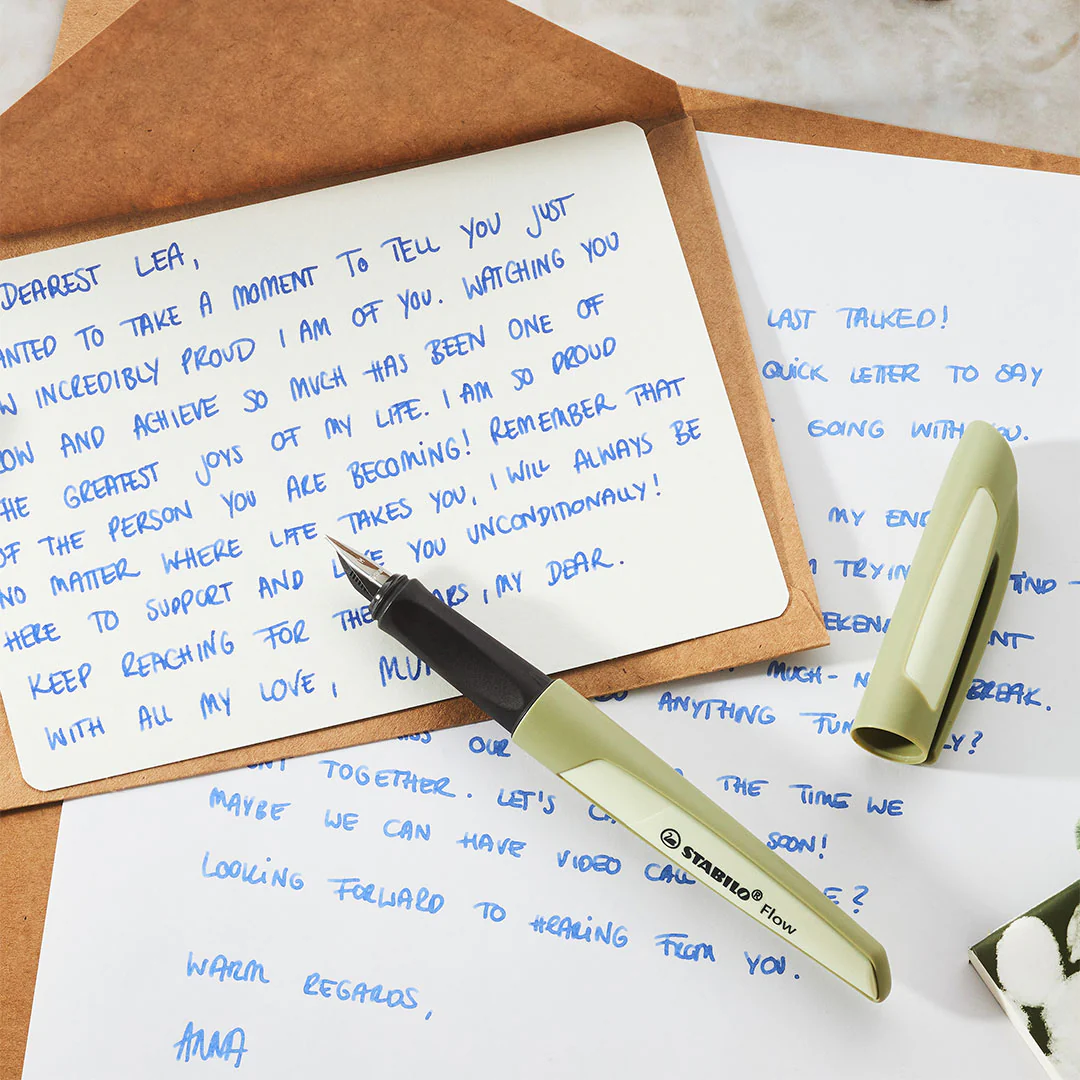 DEAREST LEA,
ANTED TO TAKE A MOMENT TO TELL YOU JUST
W INCREDIBLY PROUD I AM OF YOU. WATCHING YOU
OW AND ACHIEVE SO MUCH HAS BEEN ONE OF
HE GREATEST JOYS OF MY LIFE. I AM SO PROUD
OF THE PERSON YOU ARE BECOMING! REMEMBER THAT
NO MATTER WHERE LIFE TAKES YOU, I WILL ALWAYS BE
HERE TO SUPPORT AND YOU UNCONDITIONALLY!
KEEP REACHING FOR THE ARS, MY DEAR.
WITH ALL MY LOVE, MU
LAST TALKED!
QUICK LETTER TO SAY
GOING WITH YOU.
MY END
TRYIN IND
EKEN NT
MUCH- N BREAK.
ANYTHING FUN LY?
ISS OUR THE TIME WE
NT TOGETHER. LET'S CA SOON!
MAYBE WE CAN HAVE VIDEO CALL E?
LOOKING FORWARD TO HEARING FROM YOU.
WARM REGARDS,
ANNA
STABILO® Flow